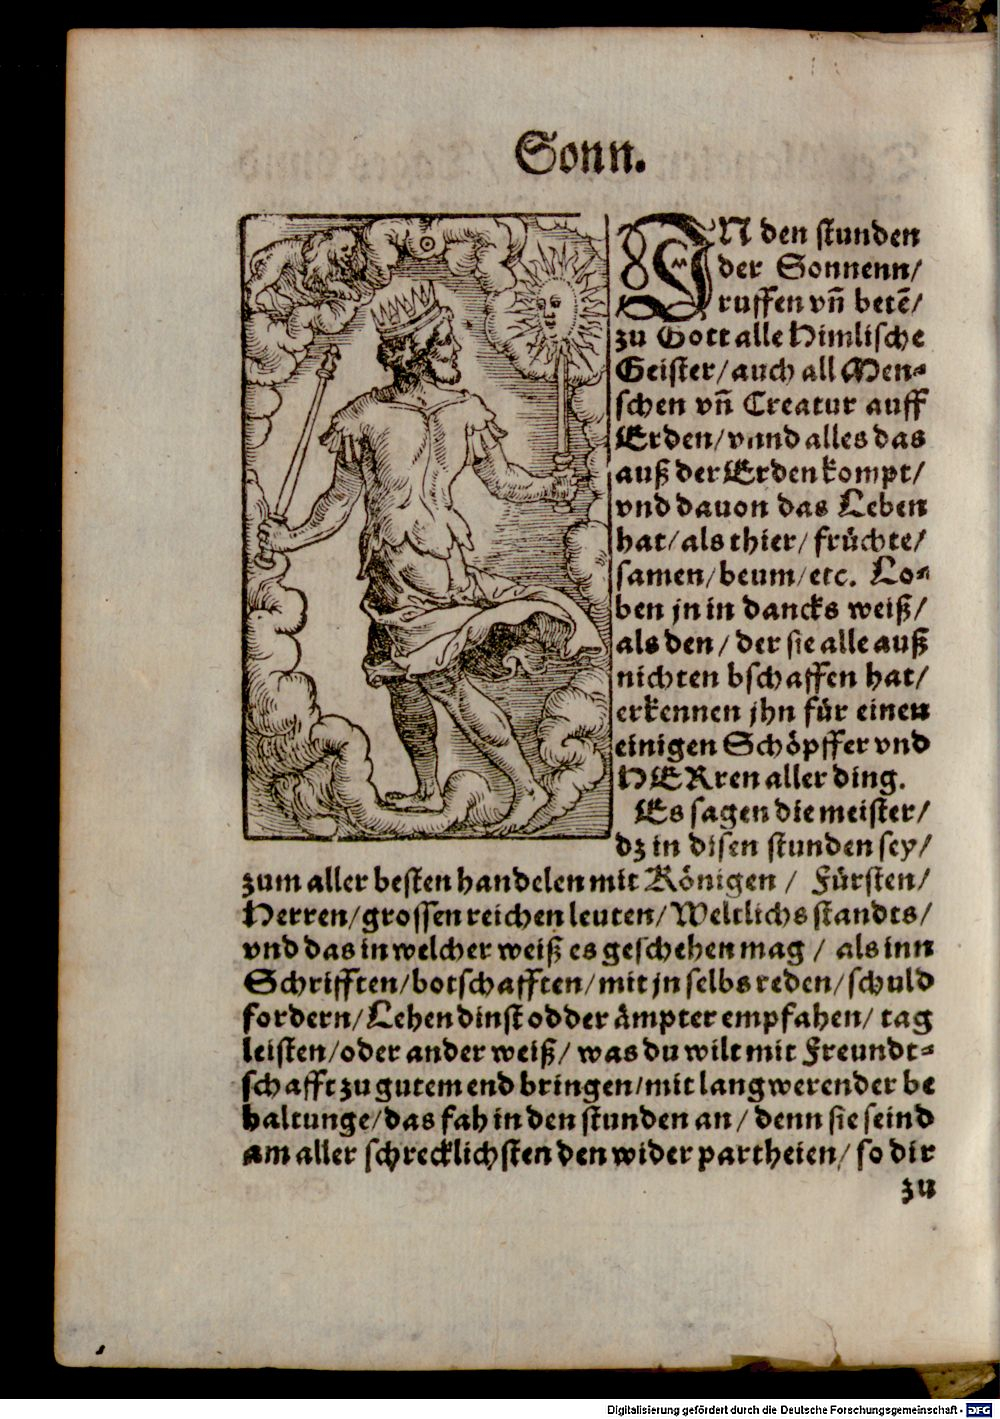 Sonn.
IN den stunden
der Sonnenn/
ruffen vn̄ betē/
zu Gott alle Himlische
Geister/ auch all Men⸗
schen vn̄ Creatur auff
Erden/ vnnd alles das
auß der Erden kompt/
vnd dauon das Leben
hat/ als thier/ früchte/
samen/ beum/ etc. Lo⸗
ben jn in dancks weiß/
als den/ der sie alle auß
nichten bschaffen hat/
erkennen jhn für einen
einigen Schöpffer vnd
HERren aller ding.
Es sagen die meister/
dz in disen stunden sey/
zum aller besten handelen mit Königen/ Fürsten/
Herren/ grossen reichen leuten/ Weltlichs standts/
vnd das in welcher weiß es geschehen mag/ als inn
Schrifften/ botschafften/ mit jn selbs reden/ schuld
fordern/ Lehen dinst odder ämpter empfahen/ tag
leisten/ oder ander weiß/ was du wilt mit Freundt⸗
schafft zu gutem end bringen/ mit langwerender be
haltunge/ das fah in den stunden an/ denn sie seind
am aller schrecklichsten den wider partheien/ so dir
zu
Digitalisierung gefördert durch die Deutsche Forschungsgemeinschaft - DFG